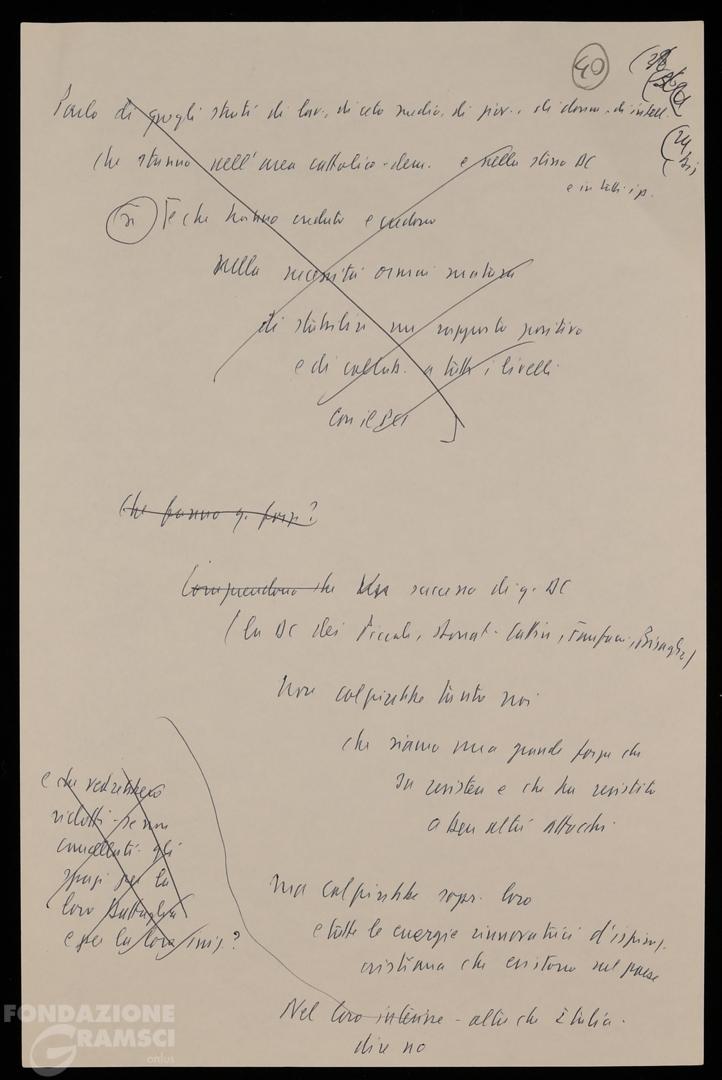 40
Parlo di quegli strati di lav., di ceto medio, di giov., di donne, di intell.
che stanno nell'area cattolico-dem. e nella stessa DC
e in tutti i p.
e che hanno creduto e credono
nella necessità ormai matura
di stabilire un rapporto positivo
e di collab. a tutti i livelli
con il PCI
Che fanno q. forze?
Comprendono che un successo di q. DC
(la DC dei Piccoli, Donat-Cattin, Fanfani, Bisaglia)
non colpirebbe tanto noi
che siamo una grande forza che
sa resistere e che ha resistito
a ben altri attacchi
ma colpirebbe sopr. loro
e tutte le energie rinnovatrici d'ispiraz.
cristiana che esistono nel paese
e che vedrebbero
ridotti se non
cancellati gli
spazi per la
loro battaglia
e per la loro iniz.?
Nel loro interesse - oltre che
dire no
FONDAZIONE
GRAMSCI
onlus